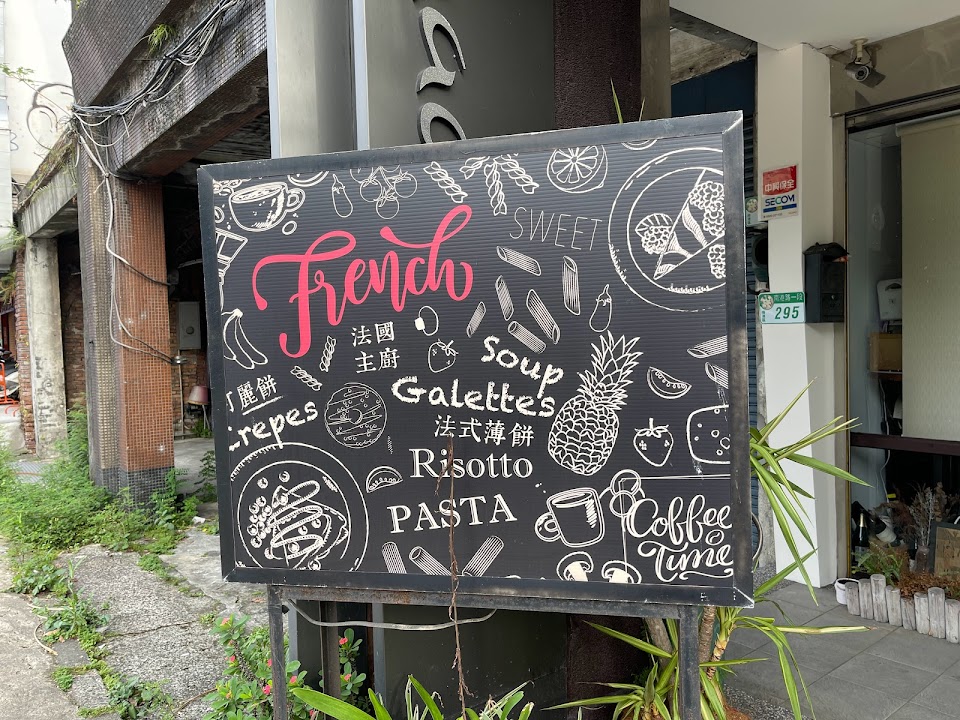 French
SWEET
法國
主廚
Soup
Galettes
法式薄餅
麗餅
Crepes
Risotto
PASTA
Coffee
Time
中興保全
SECOM
南港路一段
295